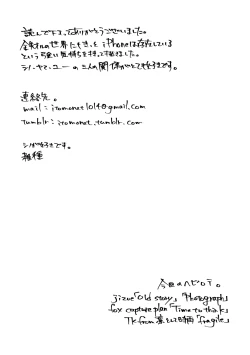 読んで下さってありがとうございました。
の世界にもきっと iPhoneは存在している
という強い気持ちを持って描きました。
シノ・ヤマ・ユーの三人の関係がとても好きです。
連絡先。
mail : itomonet1014@gmail.com
tumblr : itomonet.tumblr.com
シノが好きです。
種
今回のヘビロテ。
jizue「Old story」「Photograph」
fox capture plan「Time to thinks」
TK from 凛として時雨「fragile」